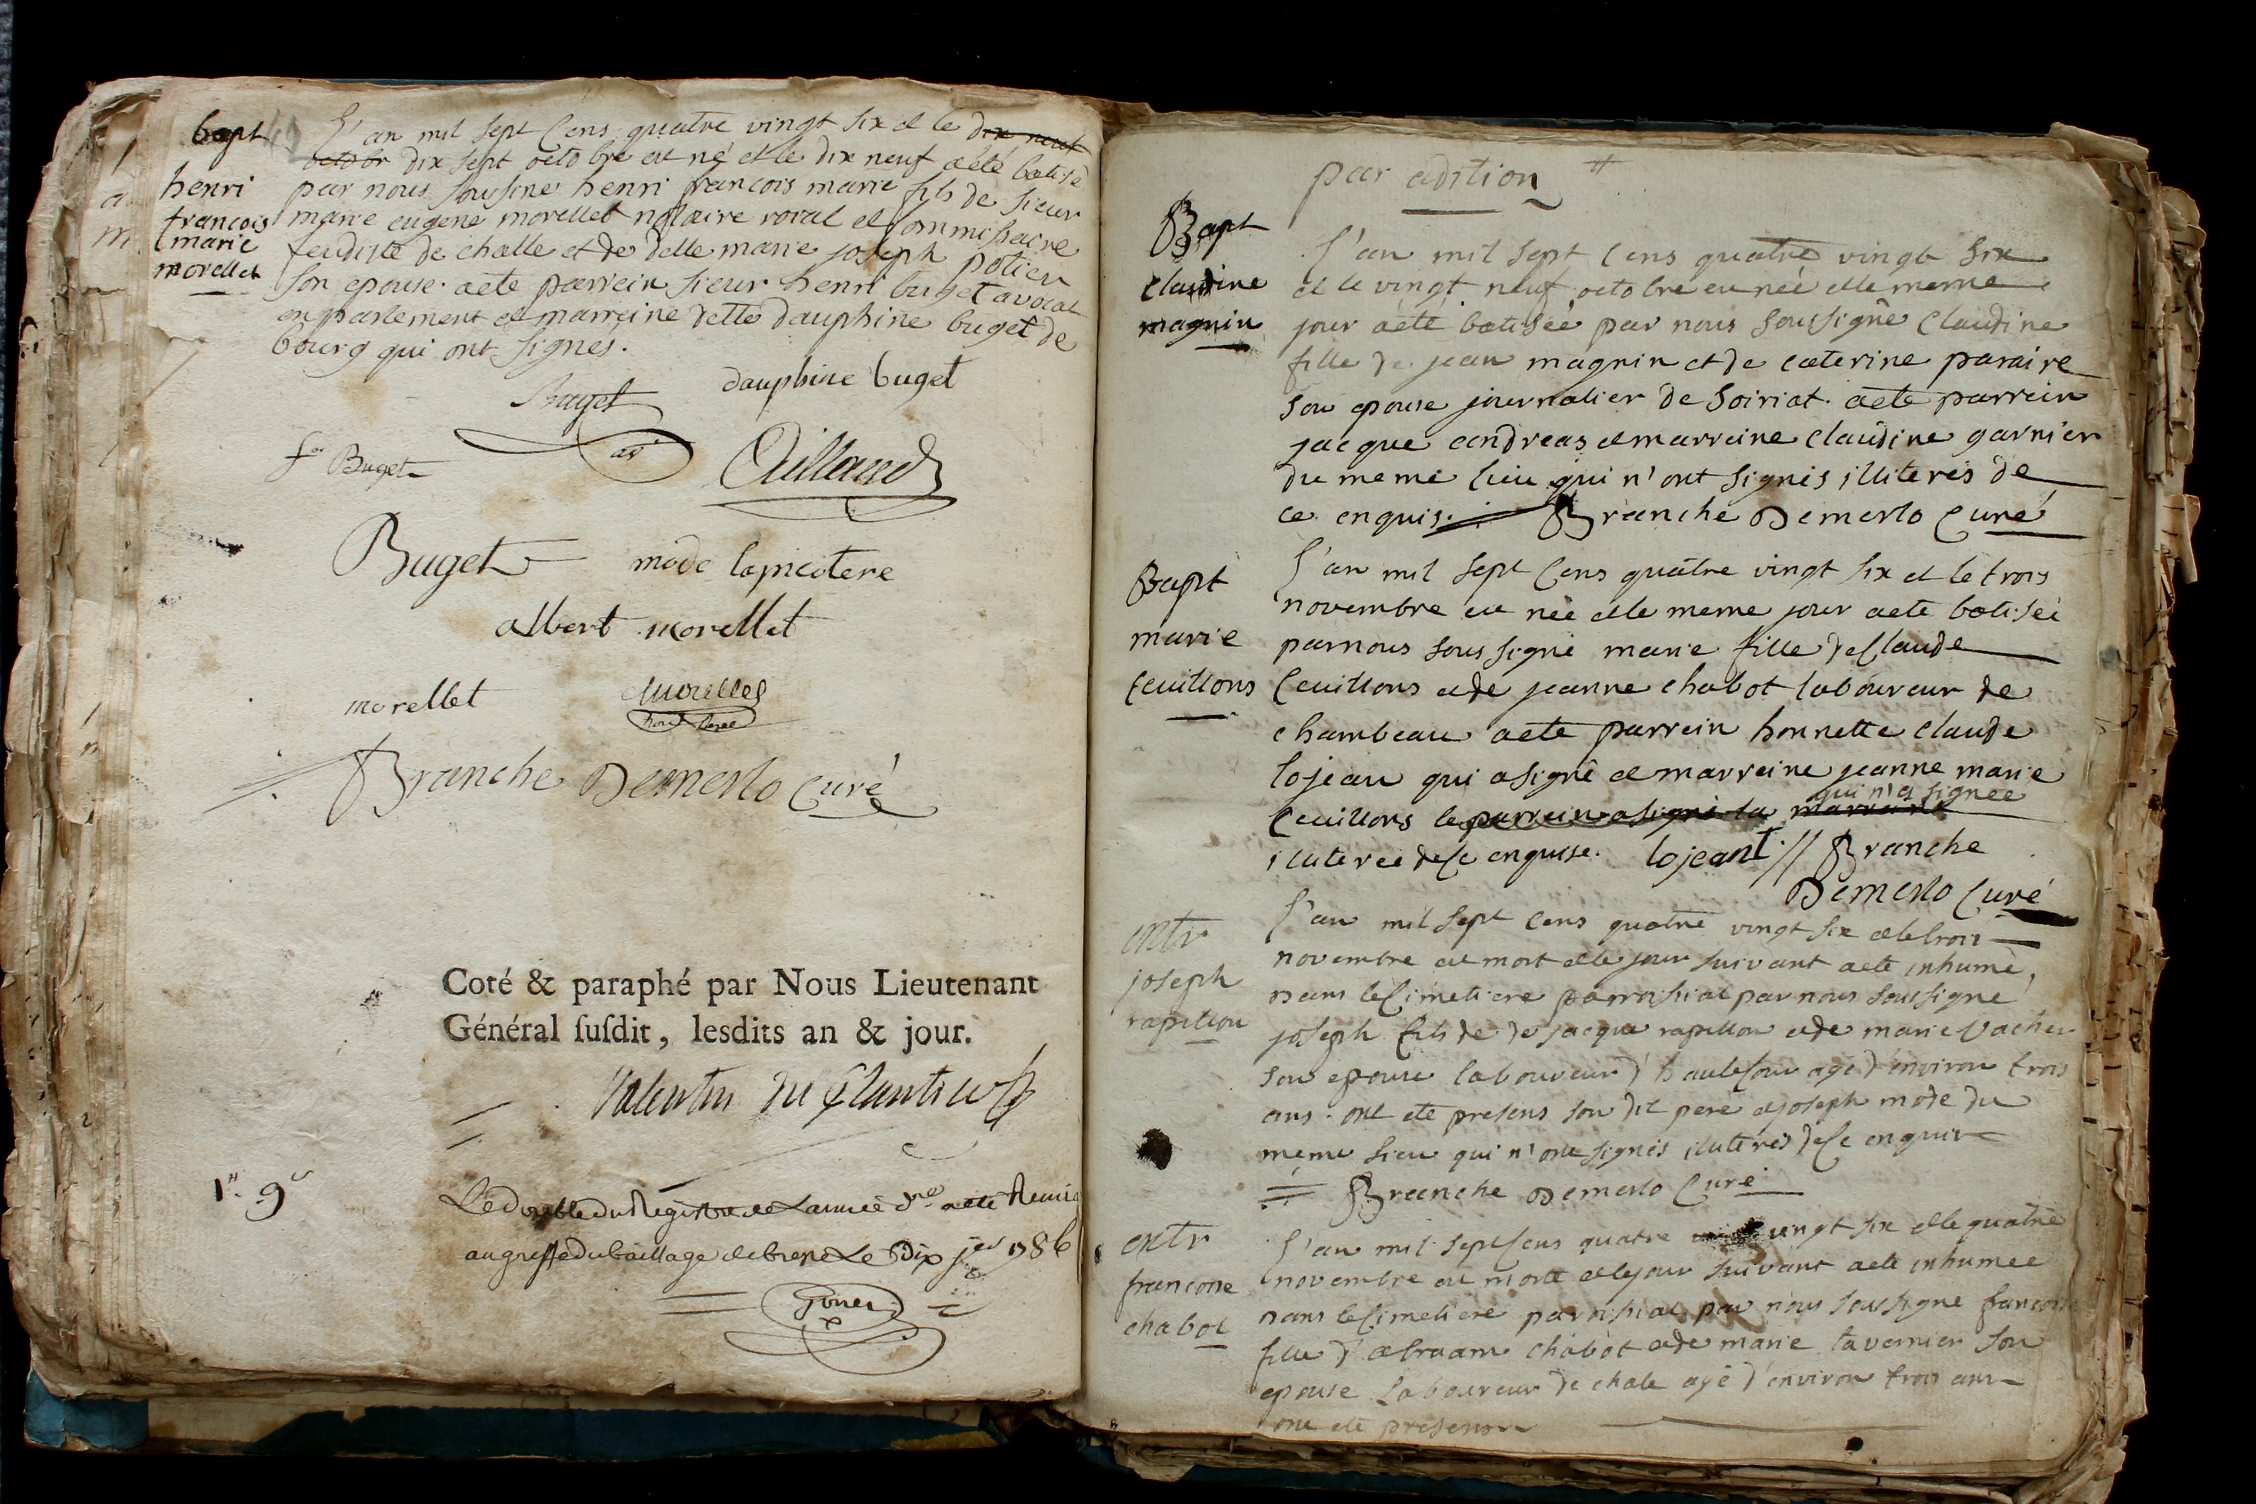 bapt
henri
francois
marie
morellet
L'an mil sept Cens quatre vingt six et le dix neuf
octobr dix sept octobre est né et le dix neuf aeté batisé
par nous sousiné henri francois marie fils de sieur
marie eugene morellet notaire roial et Commissaire
feudiste de challe et de delle marie joseph potier
son epouse. aeté parrein sieur henri buget avocat
en parlement et marreine delle dauphine buget de
bourg qui ont signés.
Buget
dauphine buget
Buget
Buget
mode lapicotere
albert morellet
morellet
Branche Demerlo Curé
Coté & paraphé par Nous Lieutenant
Général susdit, lesdits an & jour.
Valentin du plantier
1. 9
Le double du Registre de L'année dre aeté Remis
au greffe du bailliage de bresse Le Dix jer 1786
par adition
Bapt
Claudine
magnin
L'an mil sept Cens quatre vingt six
et le vingt neuf octobre est née et le meme
jour aeté batisée par nous soussigné Claudine
fille de jean magnin et de caterine paraire
son epouse journalier de soiriat. aeté parrein
jacque andreas et marreine Claudine garnier
du meme lieu qui n'ont signés illiterés de
ce enquis. Branche Demerlo Curé
Bapt
marie
Ceuillons
L'an mil sept Cens quatre vingt six et le trois
novembre est née et le meme jour aeté batisée
par nous soussigné marie fille de Claude
Ceuillons et de jeanne chabot laboureur de
chambeau aeté parrein honnette Claude
lojean qui a signé et marreine jeanne marie
qui n'a signée
Ceuillons le parrein a signé la marreine
illiterée de Ce enquise. lojeant // Branche
Demerlo Curé
entr
joseph
rapillon
L'an mil sept Cens quatre vingt six et le trois
novembre est mort et le jour suivant aeté inhumé,
Dans le Cimetiere parroissial par nous soussigné
joseph fils de de jacque rapillon et de marie Vacher
son epouse laboureur d' agé d'environ trois
ans. ont eté presens son dit pere et joseph mode du
meme lieu qui n'ont signés illiterés de Ce enquis
Branche Demerlo Curé
entr
francoise
chabot
L'an mil sept Cens quatre vingt six et le quatre
novembre est morte et le jour suivant aeté inhumée
Dans le Cimetiere parroissial par nous soussigné francoise
fille d'abraam chabot et de marie tavernier son
epouse Laboureur de chale agé d'environ trois ans
ont eté presens